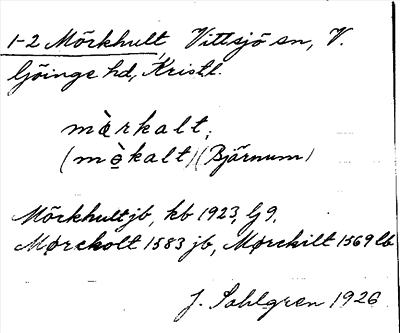 1-2 Mörkhult, Vittsjö sn, V.
Göinge hd, Kristl.
mè̀rkalt;
(mə̀kalt) (Bjärnum)
Mörkhult jb, kb 1923, G 9.
Mørckolt 1583 jb, Mørckilt 1569 lb
J. Sahlgren 1926